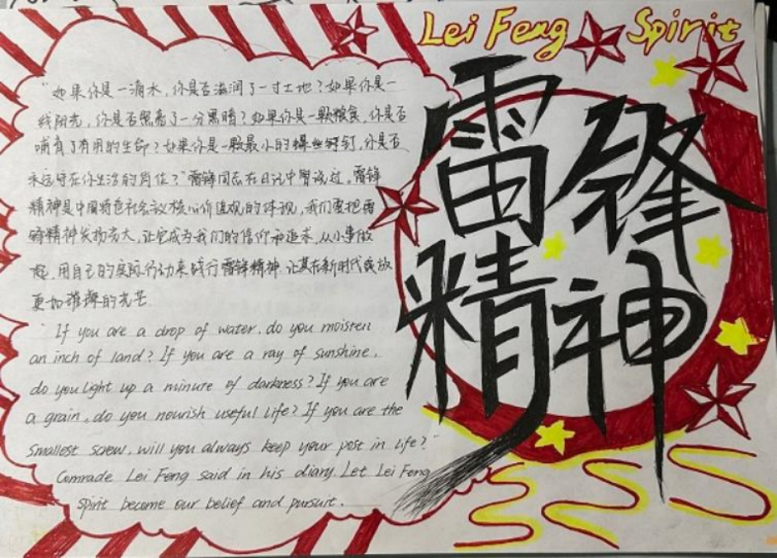 Lei Feng Spirit
雷锋
精神
“如果你是一滴水，你是否滋润了一寸土地？如果你是一
线阳光，你是否照亮了一分黑暗？如果你是一颗粮食，你是否
哺育了有用的生命？如果你是一颗最小的螺丝钉，你是否
永远守在你生活的岗位？”雷锋同志在日记中曾说过。雷锋
精神是中国特色社会主义核心价值观的体现，我们要把雷
锋精神发扬光大，让它成为我们的信仰和追求，从小事做
起，用自己的实际行动来践行雷锋精神，让其在新时代绽放
更加璀璨的光芒.
“If you are a drop of water, do you moisten
an inch of land? If you are a ray of sunshine,
do you light up a minute of darkness? If you are
a grain, do you nourish useful life? If you are the
smallest screw, will you always keep your post in life?”
Comrade Lei Feng said in his diary. Let Lei Feng
Spirit become our belief and pursuit.